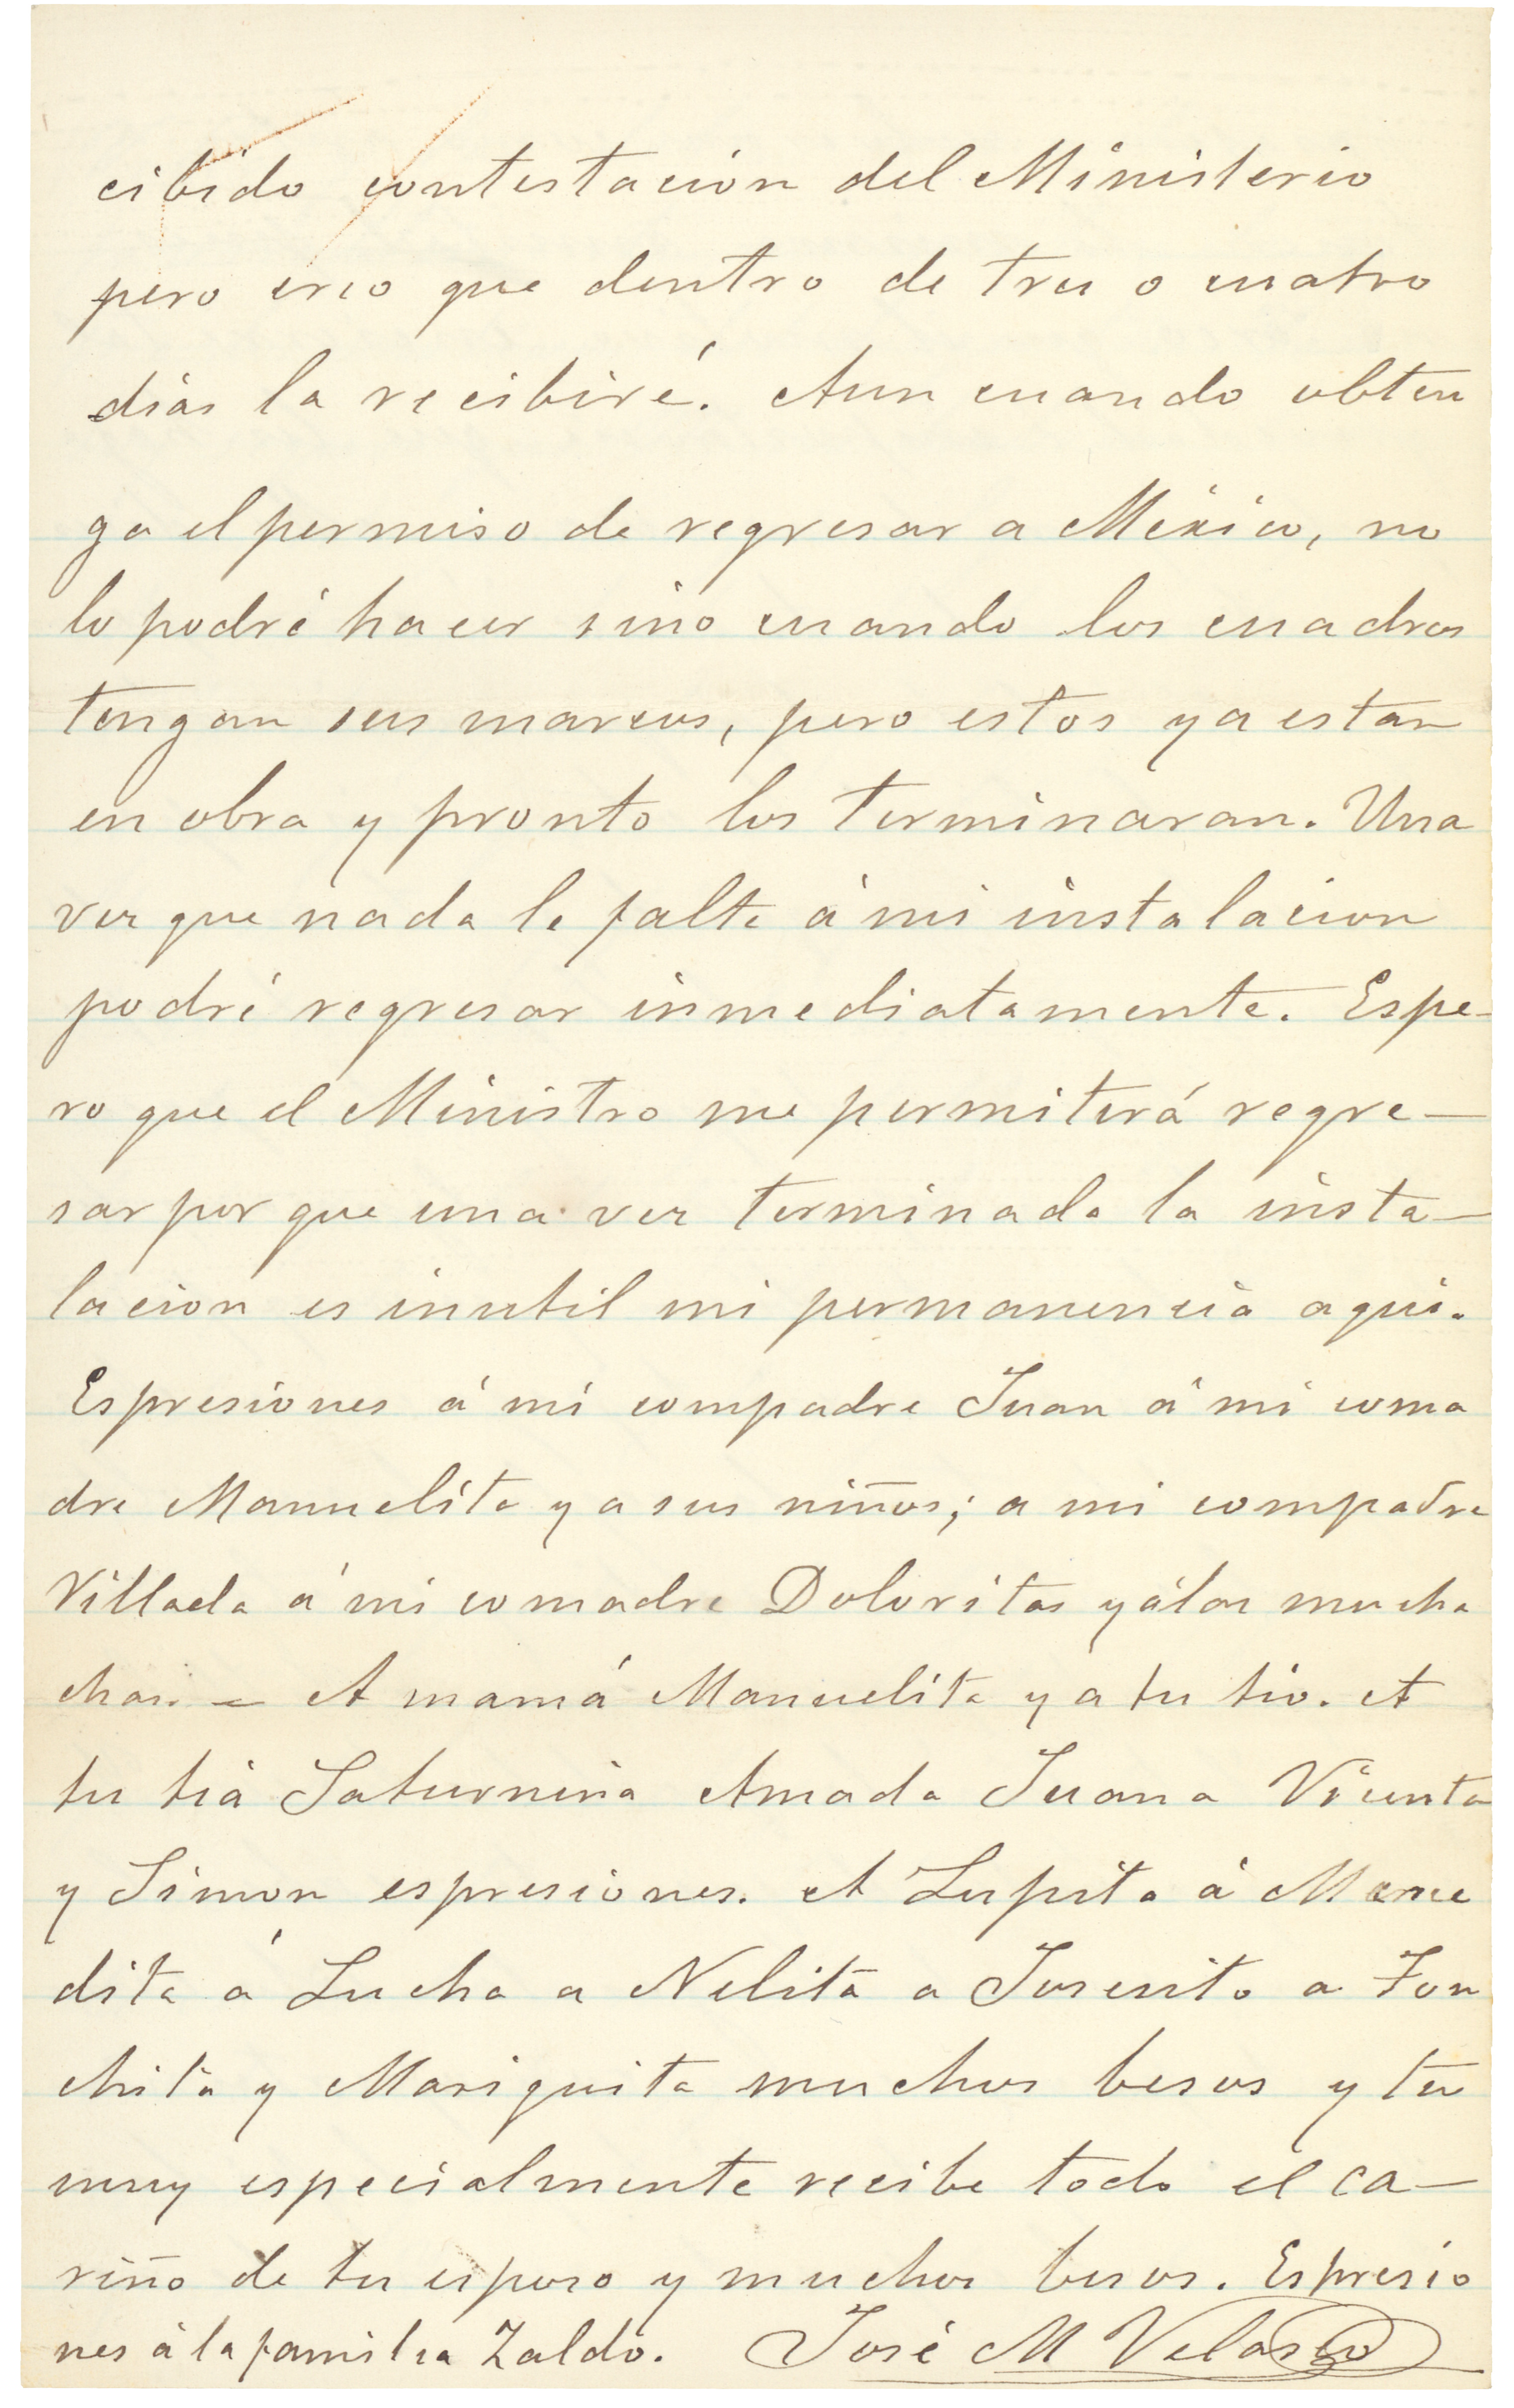 cibido contestacion del Ministerio
pero creo que dentro de tres o cuatro
dias la recibiré. Aun cuando obten
ga el permiso de regresar a México, no
lo podré hacer sino cuando los cuadros
tengan sus marcos, pero estos ya estan
en obra y pronto los terminaran. Una
vez que nada le falte á mi instalacion
podré regresar inmediatamente. Espe-
ro que el Ministro me permiterá regre-
sar por que una vez terminada la insta-
lacion es inutil mi permanencia aqui.
Espresiones á mi compadre Juan á mi coma
dre Manuelita y a sus niños; a mi compadre
Villada á mi comadre Doloritas y á los mucha
chos — A mamá Manuelita y a tu tio. A
tu tia Saturnina Amada Juana Vicenta
y Simon espresiones. A Lupita á Merce
dita á Lucha a Nelita a Josecito a Con
chita y Mariquita muchos besos y tu
muy especialmente recibe todo el ca-
riño de tu esposo y muchos besos. Espresio
nes á la familia Zaldo. José M Velasco